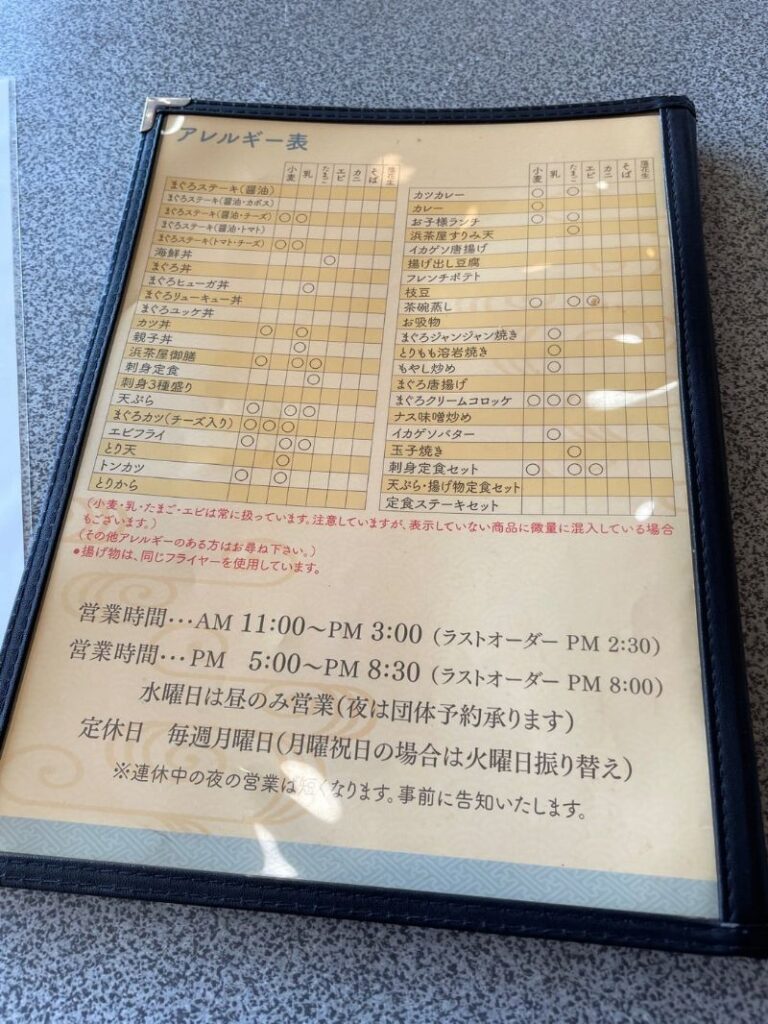 アレルギー表
小麦 乳 たまご エビ カニ そば 落花生
まぐろステーキ(醤油)
まぐろステーキ(醤油・カボス)
まぐろステーキ(醤油・チーズ) ○ ○
まぐろステーキ(醤油・トマト)
まぐろステーキ(トマト・チーズ) ○ ○
海鮮丼 ○
まぐろ丼
まぐろヒューガ丼 ○
まぐろリューキュー丼
まぐろユッケ丼
カツ丼 ○ ○
親子丼 ○
浜茶屋御膳 ○ ○ ○
刺身定食 ○
刺身3種盛り
天ぷら ○ ○ ○
まぐろカツ(チーズ入り) ○ ○ ○
エビフライ ○ ○ ○
とり天 ○
トンカツ ○ ○
とりから
小麦 乳 たまご エビ カニ そば 落花生
カツカレー ○ ○
カレー ○
お子様ランチ ○ ○
浜茶屋すりみ天 ○
イカゲソ唐揚げ
揚げ出し豆腐
フレンチポテト
枝豆
茶碗蒸し ○ ○ ○
お吸物
まぐろジャンジャン焼き ○
とりもも溶岩焼き ○
もやし炒め ○
まぐろ唐揚げ
まぐろクリームコロッケ ○ ○ ○
ナス味噌炒め
イカゲソバター ○
玉子焼き ○
刺身定食セット ○ ○ ○
天ぷら・揚げ物定食セット
定食ステーキセット
(小麦・乳・たまご・エビは常に扱っています。注意していますが、表示していない商品に微量に混入している場合
もございます。)
(その他アレルギーのある方はお尋ね下さい。)
●揚げ物は、同じフライヤーを使用しています。
営業時間…AM 11:00〜PM 3:00 (ラストオーダー PM 2:30)
営業時間…PM 5:00〜PM 8:30 (ラストオーダー PM 8:00)
水曜日は昼のみ営業(夜は団体予約承ります)
定休日 毎週月曜日(月曜祝日の場合は火曜日振り替え)
※連休中の夜の営業は短くなります。事前に告知いたします。